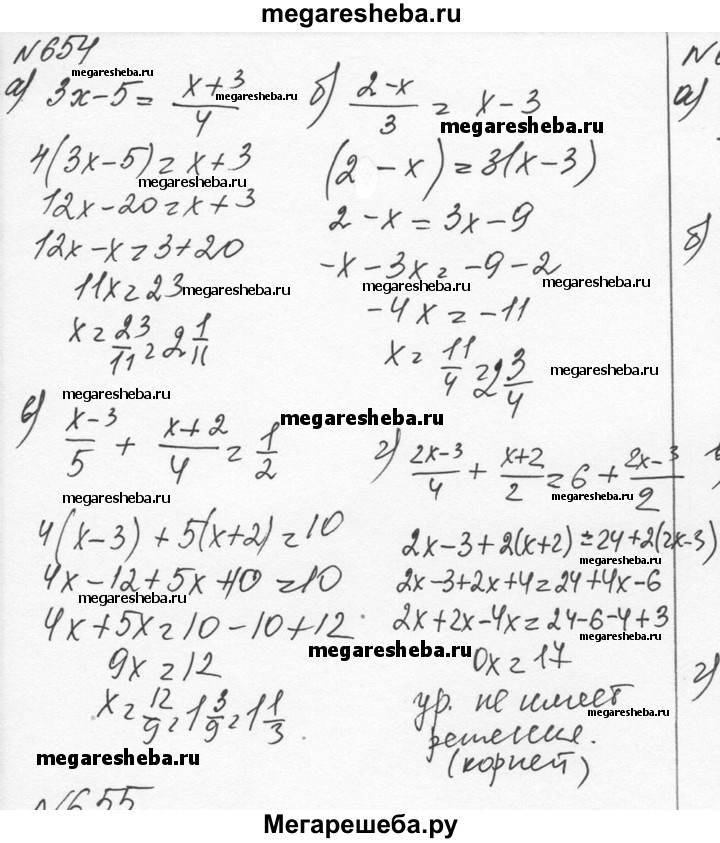 megaresheba.ru
№654
а) 3x-5= (x+3)/4
megaresheba.ru
megaresheba.ru
4(3x-5)=x+3
megaresheba.ru
12x-20=x+3
12x-x=3+20
11x=23
megaresheba.ru
x=23/11=2 1/11
б) (2-x)/3 = x-3
megaresheba.ru
(2-x)=3(x-3)
2-x=3x-9
-x-3x=-9-2
megaresheba.ru
-4x=-11
x=11/4=2 3/4
megaresheba.ru
megaresheba.ru
в) (x-3)/5 + (x+2)/4 = 1/2
megaresheba.ru
megaresheba.ru
4(x-3)+5(x+2)=10
4x-12+5x+10=10
megaresheba.ru
4x+5x=10-10+12
9x=12
x=12/9=1 3/9=1 1/3.
megaresheba.ru
г) (2x-3)/4 + (x+2)/2 = 6 + (2x-3)/2
megaresheba.ru
2x-3+2(x+2)=24+2(2x-3)
2x-3+2x+4=24+4x-6
megaresheba.ru
2x+2x-4x=24-6-4+3
megaresheba.ru
0x=17
ур. не имеет
megaresheba.ru
решения.
(корней)
megaresheba.ru
а)
б)
г)
№655
Мегарешеба.ру